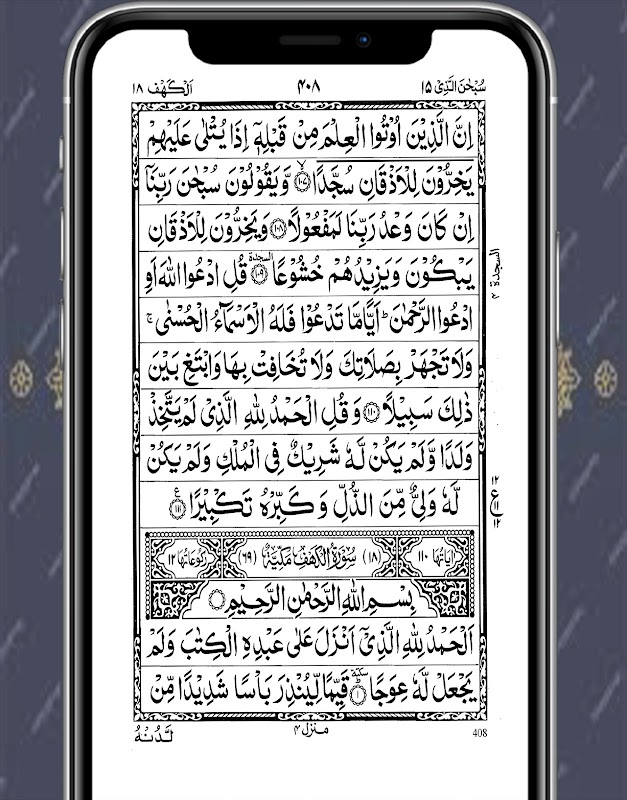 سُبْحٰنَ الَّذِیْ ۱۵
۴۰۸
اَلْکَهْف ۱۸
اِنَّ الَّذِیْنَ اُوْتُوا الْعِلْمَ مِنْ قَبْلِهٖۤ اِذَا یُتْلٰی عَلَیْهِمْ
یَخِرُّوْنَ لِلْاَذْقَانِ سُجَّدًا ۙ‏۱۰۷ وَّیَقُوْلُوْنَ سُبْحٰنَ رَبِّنَاۤ
اِنْ کَانَ وَعْدُ رَبِّنَا لَمَفْعُوْلًا ۱۰۸ وَیَخِرُّوْنَ لِلْاَذْقَانِ
یَبْکُوْنَ وَیَزِیْدُهُمْ خُشُوْعًا ۱۰۹ السجدة قُلِ ادْعُوا اللّٰهَ اَوِ
السجدة ۴
ادْعُوا الرَّحْمٰنَ ؕ اَیًّامَّا تَدْعُوْا فَلَهُ الْاَسْمَآءُ الْحُسْنٰی ۚ
وَلَا تَجْهَرْ بِصَلَاتِكَ وَلَا تُخَافِتْ بِهَا وَابْتَغِ بَیْنَ
ذٰلِكَ سَبِیْلًا ۱۱۰ وَقُلِ الْحَمْدُ لِلّٰهِ الَّذِیْ لَمْ یَتَّخِذْ
وَلَدًا وَّلَمْ یَکُنْ لَّهٗ شَرِیْكٌ فِی الْمُلْكِ وَلَمْ یَکُنْ
لَّهٗ وَلِیٌّ مِّنَ الذُّلِّ وَکَبِّرْهُ تَکْبِیْرًا ۱۱۱ ع
۱۲
ع
۱۱
۱۲
اٰیَاتُهَا ۱۱۰ (۱۸) سُوْرَةُ الْکَهْفِ مَکِّیَّةٌ (۶۹) رُکُوْعَاتُهَا ۱۲
بِسْمِ اللّٰهِ الرَّحْمٰنِ الرَّحِیْمِ
اَلْحَمْدُ لِلّٰهِ الَّذِیْۤ اَنْزَلَ عَلٰی عَبْدِهِ الْکِتٰبَ وَلَمْ
یَجْعَلْ لَّهٗ عِوَجًا ۱ سكتة قَیِّمًا لِّیُنْذِرَ بَاْسًا شَدِیْدًا مِّنْ
لَّدُنْهُ
منزل ۴
408